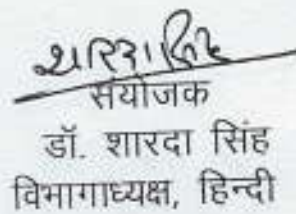 शारदा सिंह
संयोजक
डॉ. शारदा सिंह
विभागाध्यक्ष, हिन्दी